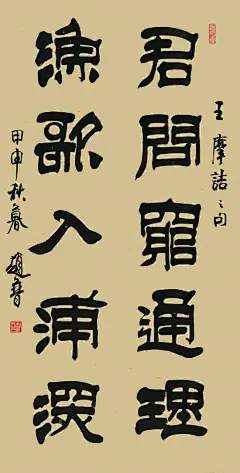 君問窮通理
漁歌入浦深
王摩詰之句
甲申秋暮